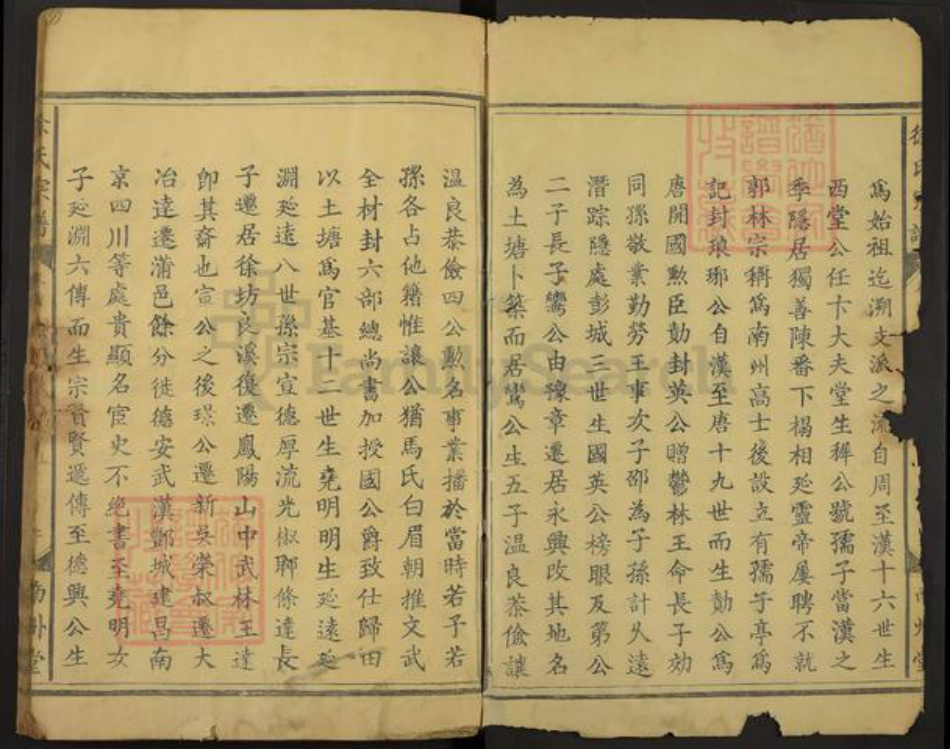 為始祖迄溯支派之流自周至漢十六世生
西堂公任卞大夫堂生穉公號孺子當漢之
季隱居獨善陳番下榻相延靈帝屢聘不就
郭林宗稱爲南州高士後設立有孺子亭爲
記封琅琊公自漢至唐十九世而生勣公爲
唐開國勲臣勣封英公贈鬱林王命長子効
同孫敬業勤勞王事次子邵為子孫計乆遠
潛踪隱處彭城三世生國英公榜眼及第公
二子長子鸞公由豫章遷居永興改其地名
為土塘卜築而居鸞公生五子温良恭儉讓
温良恭儉四公勳名事業播於當時若子若
孫各占他籍惟讓公猶馬氏白眉朝推文武
全材封六部總尚書加授國公爵致仕歸田
以土塘爲官基十二世生堯明明生延遠延
淵延遠八世孫宗宣德厚流光椒聊條達長
子遷居徐坊良溪復遷鳳陽山中武林王達
卽其裔也宣公之後璟公遷新吳榮叔遷大
冶逵遷蒲邑餘分徙德安武漢鄷城建昌南
京四川等處貴顯名宦史不絶書至堯明次
子延淵六傳而生宗賢賢遞傳至德興公生
徐氏宗譜
南州堂
FamilySearch